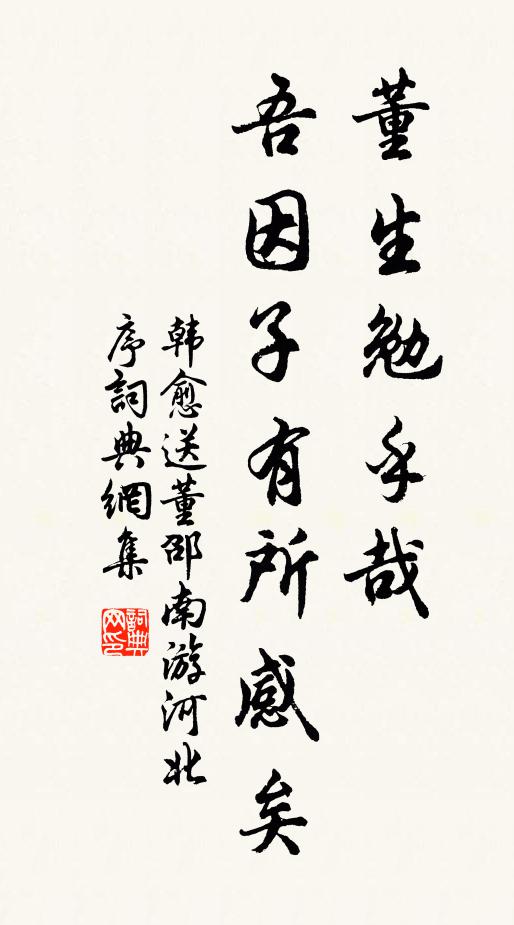 董生勉乎哉
吾因子有所感矣
韩愈送董邵南游河北
序詞典網集
詞典网印